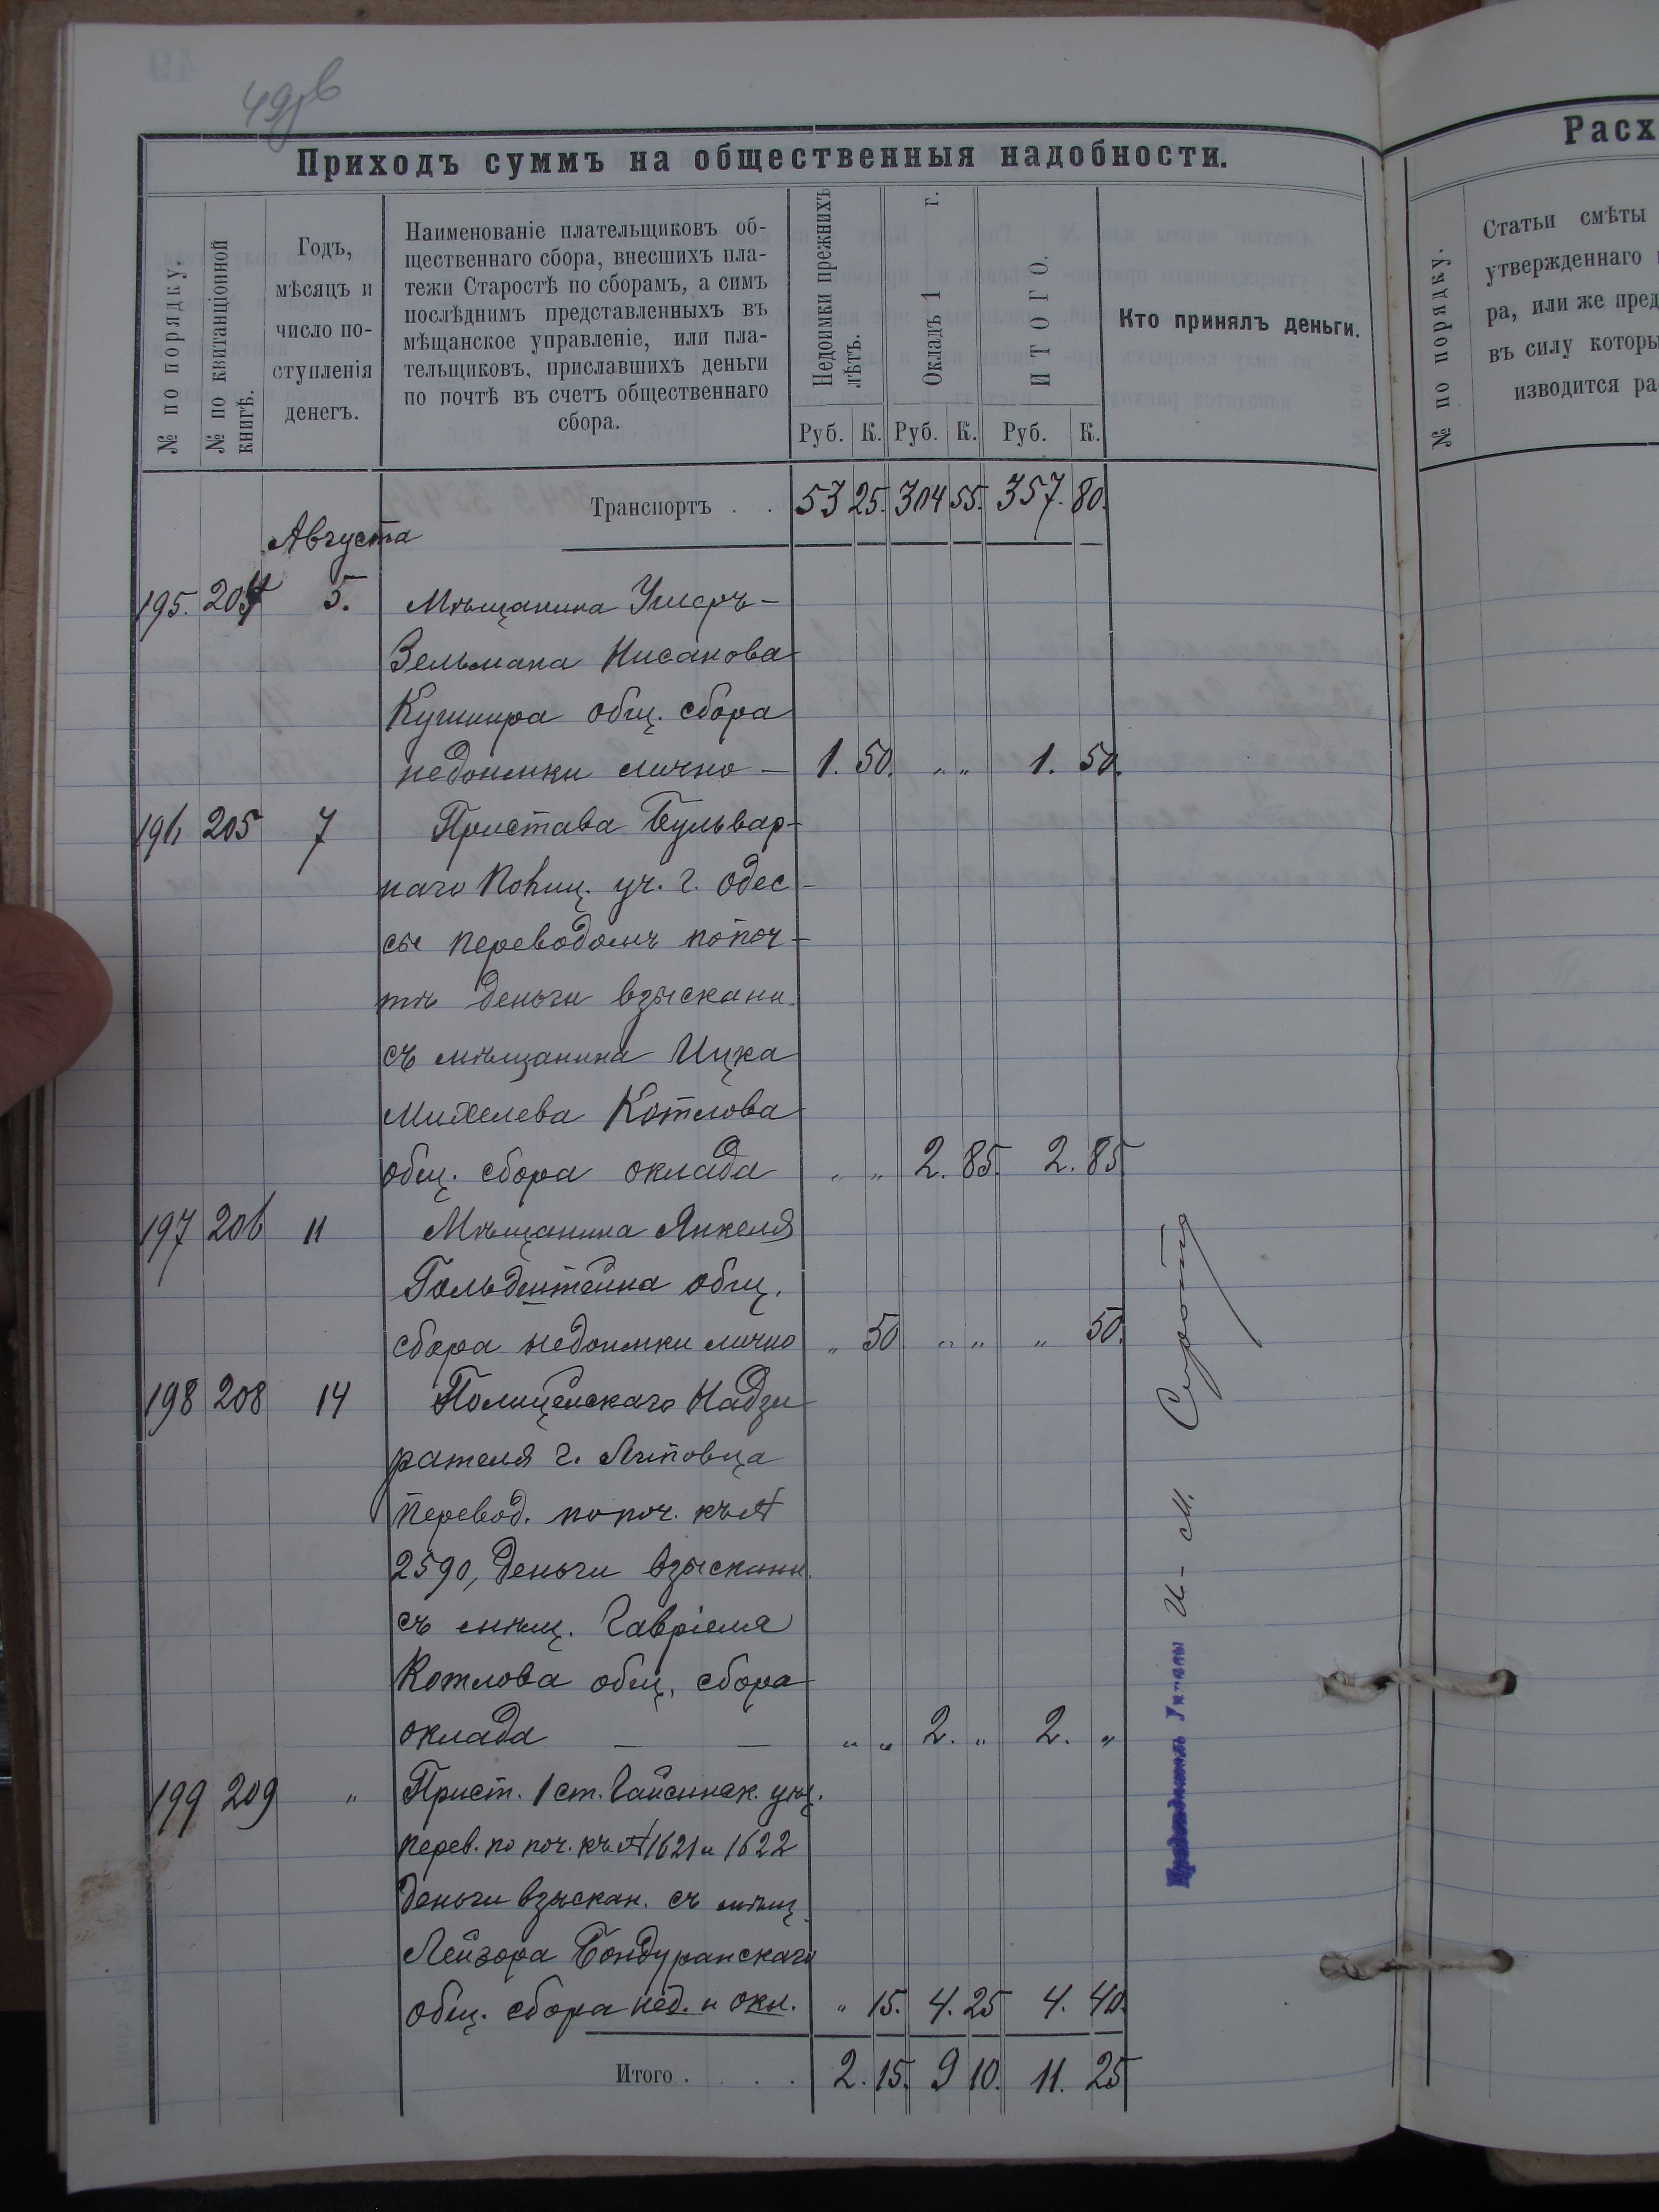 49об
Приходъ суммъ на общественныя надобности.
№ по порядку.
№ по квитанціонной
книгѣ.
Годъ,
мѣсяцъ и
число по-
ступленія
денегъ.
Наименованіе плательщиковъ об-
щественнаго сбора, внесшихъ пла-
тежи Старостѣ по сборамъ, а симъ
послѣднимъ представленныхъ въ
мѣщанское управленіе, или пла-
тельщиковъ, приславшихъ деньги
по почтѣ въ счетъ общественнаго
сбора.
Недоимки прежнихъ
лѣтъ.
Окладъ 1 г.
ИТОГО.
Руб. К. Руб. К. Руб. К.
Кто принялъ деньги.
Транспортъ . . 53 25. 304 55. 357. 80.
Августа
195. 204 5. Мѣщанина Ушеръ-
Зельмана Нисанова
Кушнира общ. сбора
недоимки лично - 1. 50. „ „ 1. 50.
196 205 7 Пристава Бульвар-
наго Полиц. уч. г. Одес-
сы переводомъ попоч-
тѣ деньги взыскани.
съ мѣщанина Ицка
Михелева Котлова
общ. сбора оклада „ „ 2. 85. 2. 85
197 206 11 Мѣщанина Янкеля
Гольдштейна общ.
сбора недоимки лично „ 50. „ „ „ 50.
198 208 14 Полицейскаго Надзи-
рателя г. Липовца
перевод. попоч. къ №
2590, деньги взыскани.
съ мѣщ. Гавріеля
Котлова общ. сбора
оклада — — „ „ 2. „ 2. „
199 209 „ Прист. 1 ст. Гайсинск. уѣз.
перев. по поч. къ № 1621 и 1622
деньги взыскан. съ мѣщ.
Лейзора Бондуранскаго
общ. сбора нед. и окл. „ 15. 4. 25 4. 40.
Итого . . . . 2. 15. 9 10. 11. 25
И. М.
Расх
№ по порядку.
Статьи смѣты
утвержденнаго
ра, или же пред
въ силу которы
изводится ра